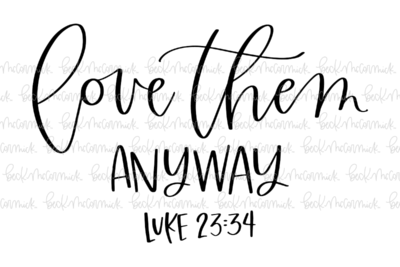 love them
ANYWAY
LUKE 23:34